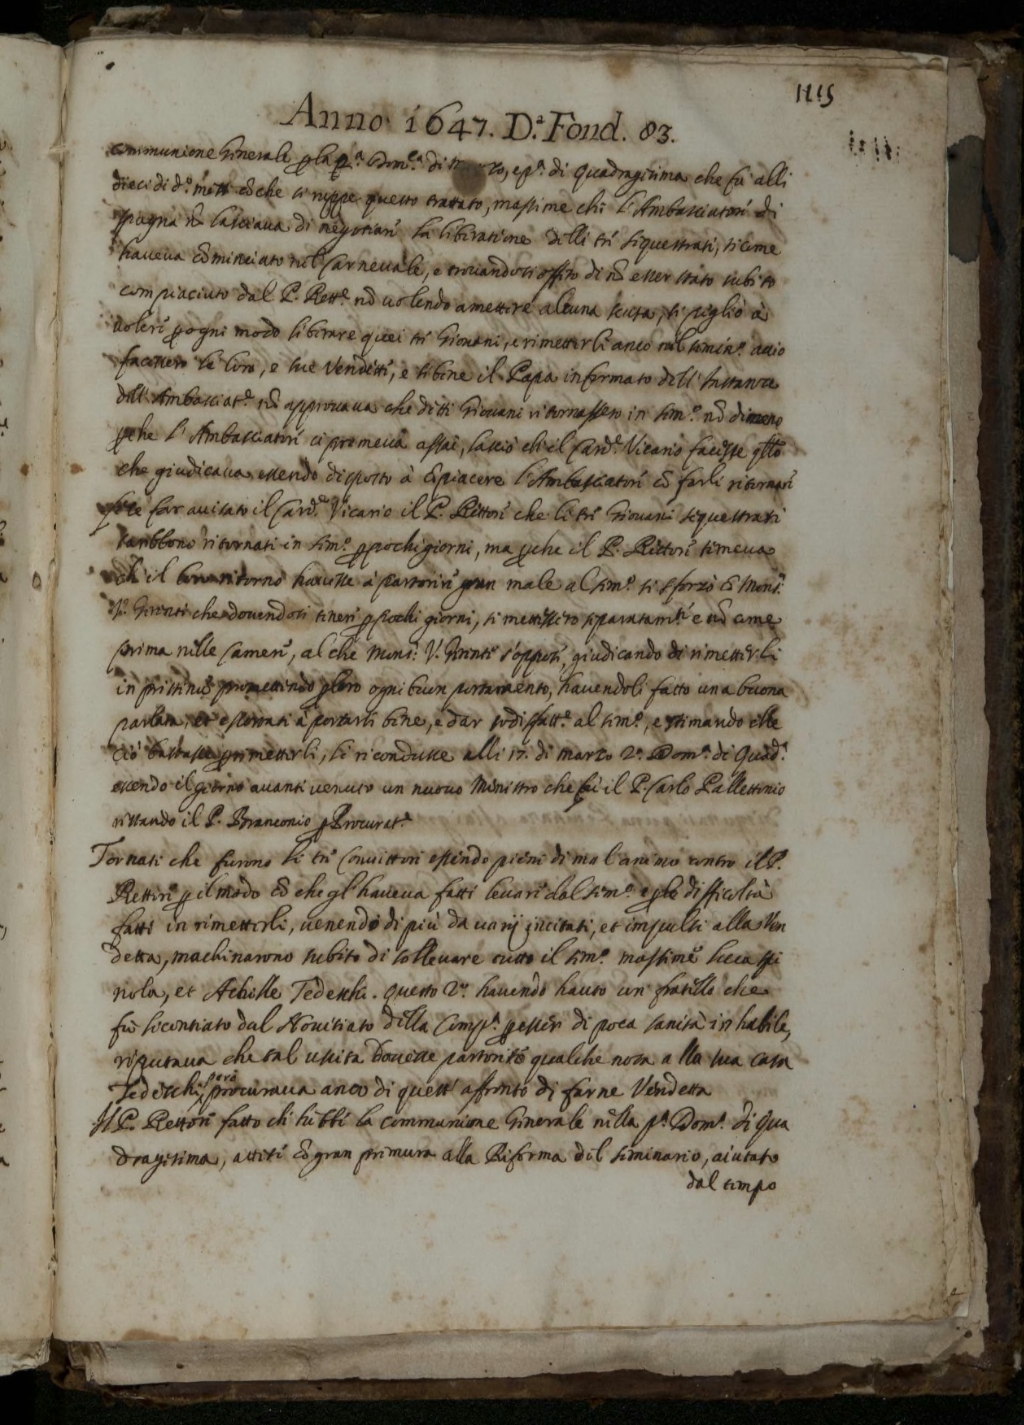 1115
Anno 1647. D.ª Fond. 83.
communione Generale p la p.ª Dom.ca di Marzo, e p.ª di Quadragesima che fu alli
dieci di d.º mese cõ che si ruppe questo trattato, massime che l'Ambasciatore di
Spagna nõ lasciava di negotiare la liberatione delli tre sequestrati, si come
haveva cõminciato nel Carnevale, e trovandosi offeso di nõ esser stato subito
compiaciuto dal P. Rett.e nõ volendo amettere alcuna scusa, si pigliò à
volere p ogni modo liberare quei tre Giovani, e rimetterli anco nel Semin.º acciò
facessero le loro, e sue Vendette, e se bene il Papa informato dell'Instanza
dell'Ambasciat.e nõ approvava che detti Giovani ritornassero in Sem.º nõ dimeno
pche l'Ambasciatore ci premeva assai, lasciò che il Card. Vicario facesse qllo
che giudicava essendo disposto à cõpiacere l'Ambasciatore cõ farli ritornare
fece far avisato il Card. Vicario il P. Rettore che li tre Giovani sequestrati
sarebbono ritornati in Sem.º p pochi giorni, ma pche il P. Rettore temeva
che il loro ritorno havesse à partorire gran male al Sem.º si sforzò cõ Mons.
V. Gerente che dovendosi tenere p pochi giorni, si mettessero separatam.te e nõ come
prima nelle Camere, al che Mons. V. Gerente s'oppose, giudicando di rimetterli
in pristinũ promettendo p loro ogni buon portamento, havendoli fatto una buona
parlata, et esortati à portarsi bene, e dar sodisfatt.e al Sem.º, e stimando che
ciò bastasse p rimetterli, li ricondusse alli 17. di Marzo 2.ª Dom.ª di Quad.ª
essendo il giorno avanti venuto un nuovo Ministro che fu il P. Carlo Pallettinio
restando il P. Branconio p Procurat.e
Tornati che furono li tre Convittori essendo pieni di mal animo contro il P.
Rettore p il modo cõ che gl'haveva fatti levare dal Sem.º e p le difficoltà
fatte in rimetterli, venendo di più da varij incitati, et impulsi alla Ven
detta, machinarono subito di sollevare tutto il Sem.º massime Luca Spi
nola, et Achille Tedeschi. Questo 2.º havendo hauto un fratello che
fù licentiato dal Novitiato della Comp.ª p esser di poca sanità inhabile,
riputava che tal uscita dovesse partorire qualche nota alla sua casa
Tedeschi, però procurava anco di questo affronto di farne Vendetta
Il P. Rettore fatto che hebbe la communione Generale nella p.ª Dom.ª di Qua
dragesima, attese cõ gran premura alla Riforma del Seminario, aiutato
dal tempo